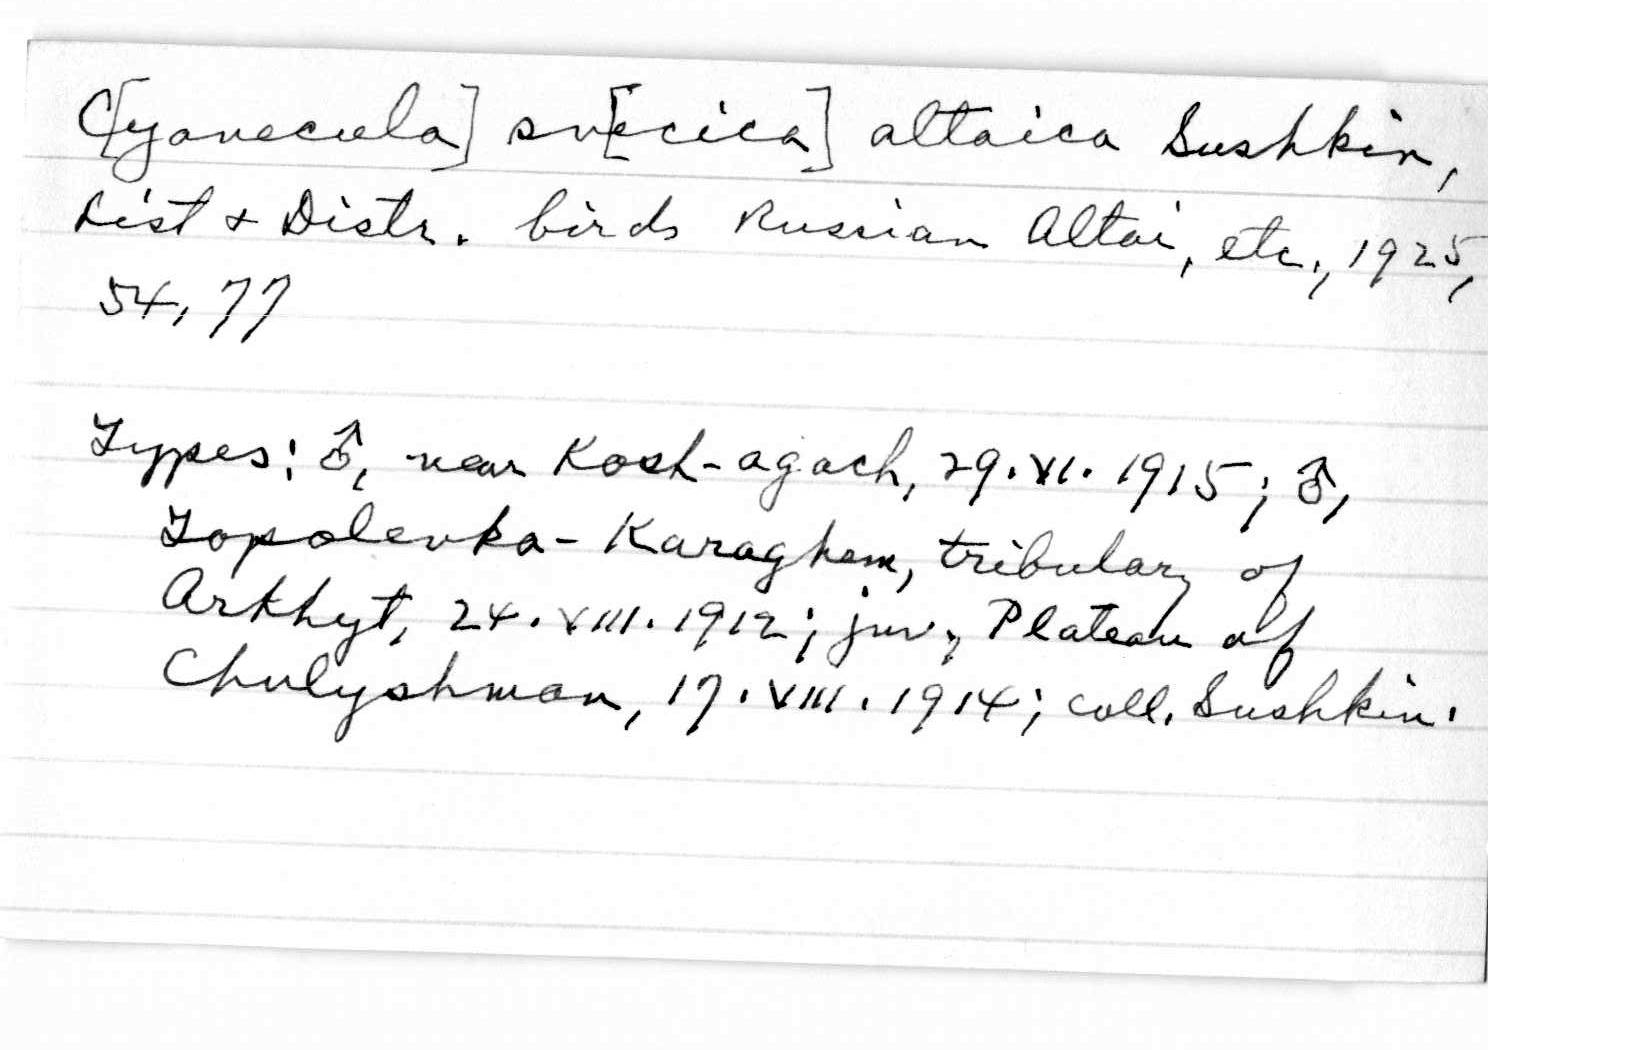 C[yanecula] sv[ecica] altaica Sushkin,
List & Distr. birds Russian Altai, etc., 1925,
54, 77
Types: ♂, near Kosh-agach, 29.VI.1915; ♂,
Topolevka-Karaghem, tributary of
Arkhyt, 24.VIII.1912; juv., Plateau of
Chulyshman, 17.VIII.1914; coll. Sushkin.